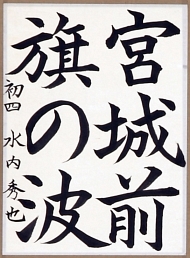 宮城前
旗の波
初四 水内秀也